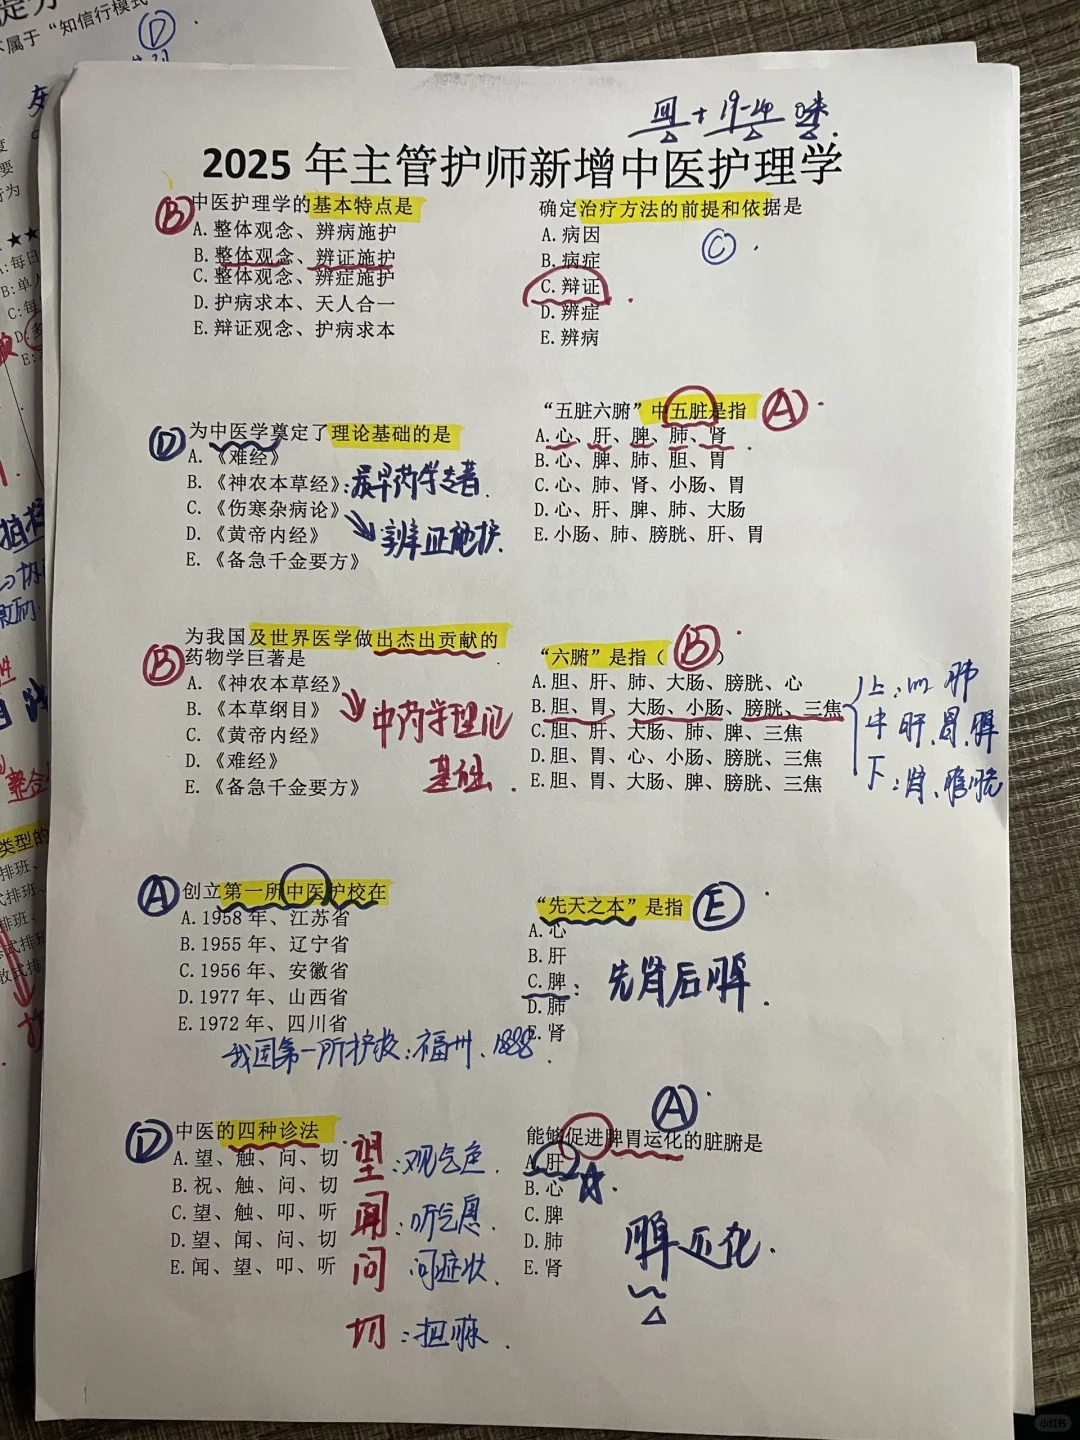 不属于“知信行模式
D
+ 19-20
2025 年主管护师新增中医护理学
B
中医护理学的基本特点是
A.整体观念、辨病施护
B.整体观念、辨证施护
C.整体观念、辨症施护
D.护病求本、天人合一
E.辩证观念、护病求本
D
为中医学奠定了理论基础的是
A.《难经》
B.《神农本草经》:最早药学专著.
C.《伤寒杂病论》
辨证施护.
D.《黄帝内经》
E.《备急千金要方》
B
为我国及世界医学做出杰出贡献的
药物学巨著是
A.《神农本草经》
B.《本草纲目》
C.《黄帝内经》
D.《难经》
E.《备急千金要方》
中药学理论
基础.
A
创立第一所中医护校在
A.1958 年、江苏省
B.1955 年、辽宁省
C.1956 年、安徽省
D.1977 年、山西省
E.1972 年、四川省
我国第一所护校:福州、1888.
D
中医的四种诊法
A.望、触、问、切
B.祝、触、问、切
C.望、触、叩、听
D.望、闻、问、切
E.闻、望、叩、听
望:观气色.
闻:听气息.
问 问症状.
切:把脉.
确定治疗方法的前提和依据是
C.
A.病因
B.病症
C.辩证
D.辨症
E.辨病
“五脏六腑”中五脏是指
A
A.心、肝、脾、肺、肾
B.心、脾、肺、胆、胃
C.心、肺、肾、小肠、胃
D.心、肝、脾、肺、大肠
E.小肠、肺、膀胱、肝、胃
“六腑”是指（B）
A.胆、肝、肺、大肠、膀胱、心
B.胆、胃、大肠、小肠、膀胱、三焦
C.胆、肝、大肠、肺、脾、三焦
D.胆、胃、心、小肠、膀胱、三焦
E.胆、胃、大肠、脾、膀胱、三焦
上:心 肺
中 肝.胃.脾
下:肾、膀胱
“先天之本”是指
E
A.心
B.肝
C.脾:
D.肺
E.肾
先肾后脾.
A
能够促进脾胃运化的脏腑是
A.肝
B.心
C.脾
D.肺
E.肾
脾运化.
小红书